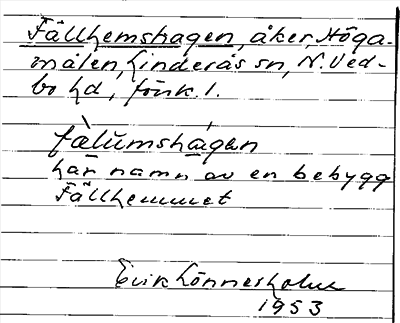 Fällhemshagen, åker, Höga-
målen, Linderås sn, N. Ved-
bo hd, förk. 1.
fälumshagen
har namn av en bebygg
Fällhemmet
Erik Lönnesholm
1953